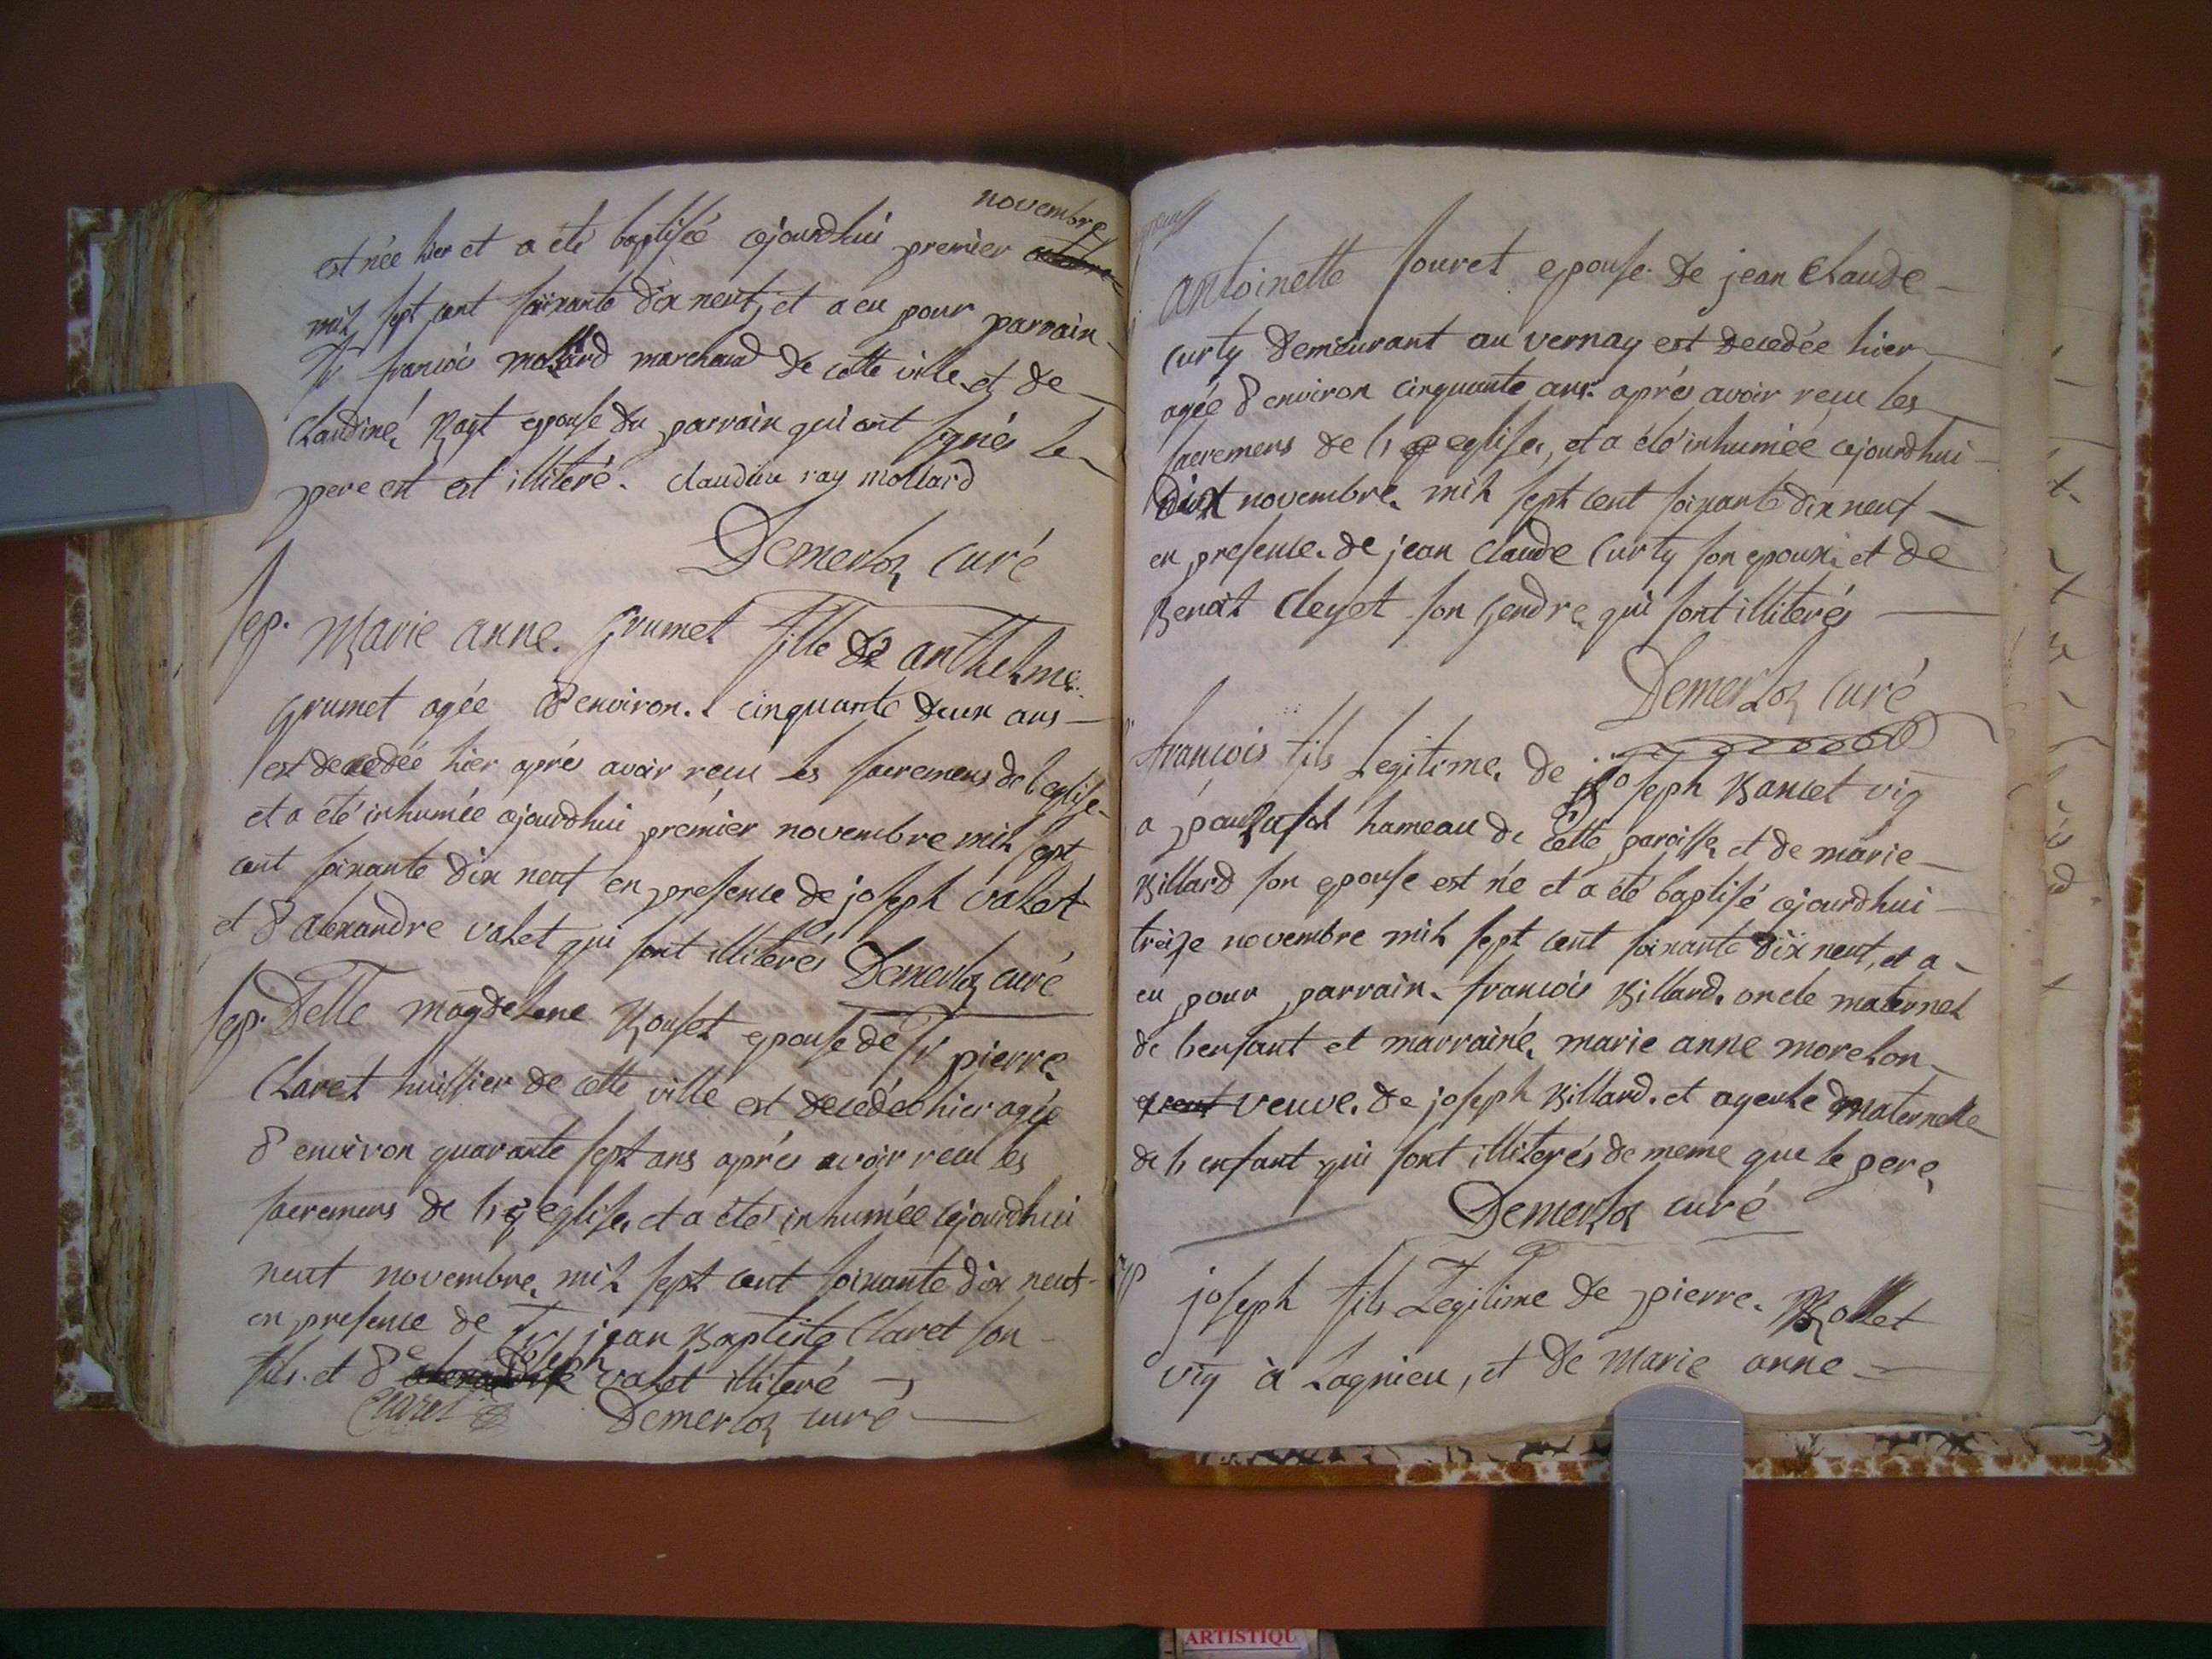 novembre
est née hier et a été baptisée cejourdhui premier octobre
mil sept cent soixante dix neuf, et a eu pour parrain
Sr francois mollard marchand de cette ville et de
Claudine Ray epouse du parrain qui ont signés le
pere est est illiteré. claudine ray mollard
Demerloz curé
sep. Marie anne grumet fille de anthelme
grumet agée d'environ cinquante deux ans
est decedée hier aprés avoir reçu les sacremens de l'eglise
et a été inhumée cejourdhui prémier novembre mil sept
cent soixante dix neuf en presence de joseph valet
et d'alexandre valet qui sont illiterés Demerloz curé
sep. Delle magdelene Rouset epouse de Sr pierre
Claret huissier de cette ville est decedée hier agée
d'environ quarante sept ans aprés avoir recu les
sacremens de l'eglise, et a été inhumée cejourdhui
neuf novembre mil sept cent soixante dix neuf
en presence de Sr jean Baptiste Claret son
joseph
fils et de valet illiteré
Claret Demerloz curé
antoinette souret epouse de jean Claude
Curty demeurant au vernay est decedée hier
agée d'environ cinquante ans aprés avoir reçu les
sacremens de l'eglise, et a été inhumée cejourdhui
dix novembre mil sept cent soixante dix neuf
en presence de jean Claude Curty son epoux et de
Benoit Cleyet son gendre qui sont illiterés
Demerloz curé
francois fils Legitime de joseph Bancet vig
a hameau de cette paroisse et de marie
Billard son epouse est né et a été baptisé cejourdhui
treize novembre mil sept cent soixante dix neuf, et a
eu pour parrain francois Billard oncle maternel
de l'enfant et marraine marie anne morelon
veuve de joseph Billard et ayeule maternelle
de l'enfant qui sont illiterés de meme que le pere
Demerloz curé
joseph fils Legitime de pierre Rollet
vig à Lagnieu, et de Marie anne
ARTISTIQU